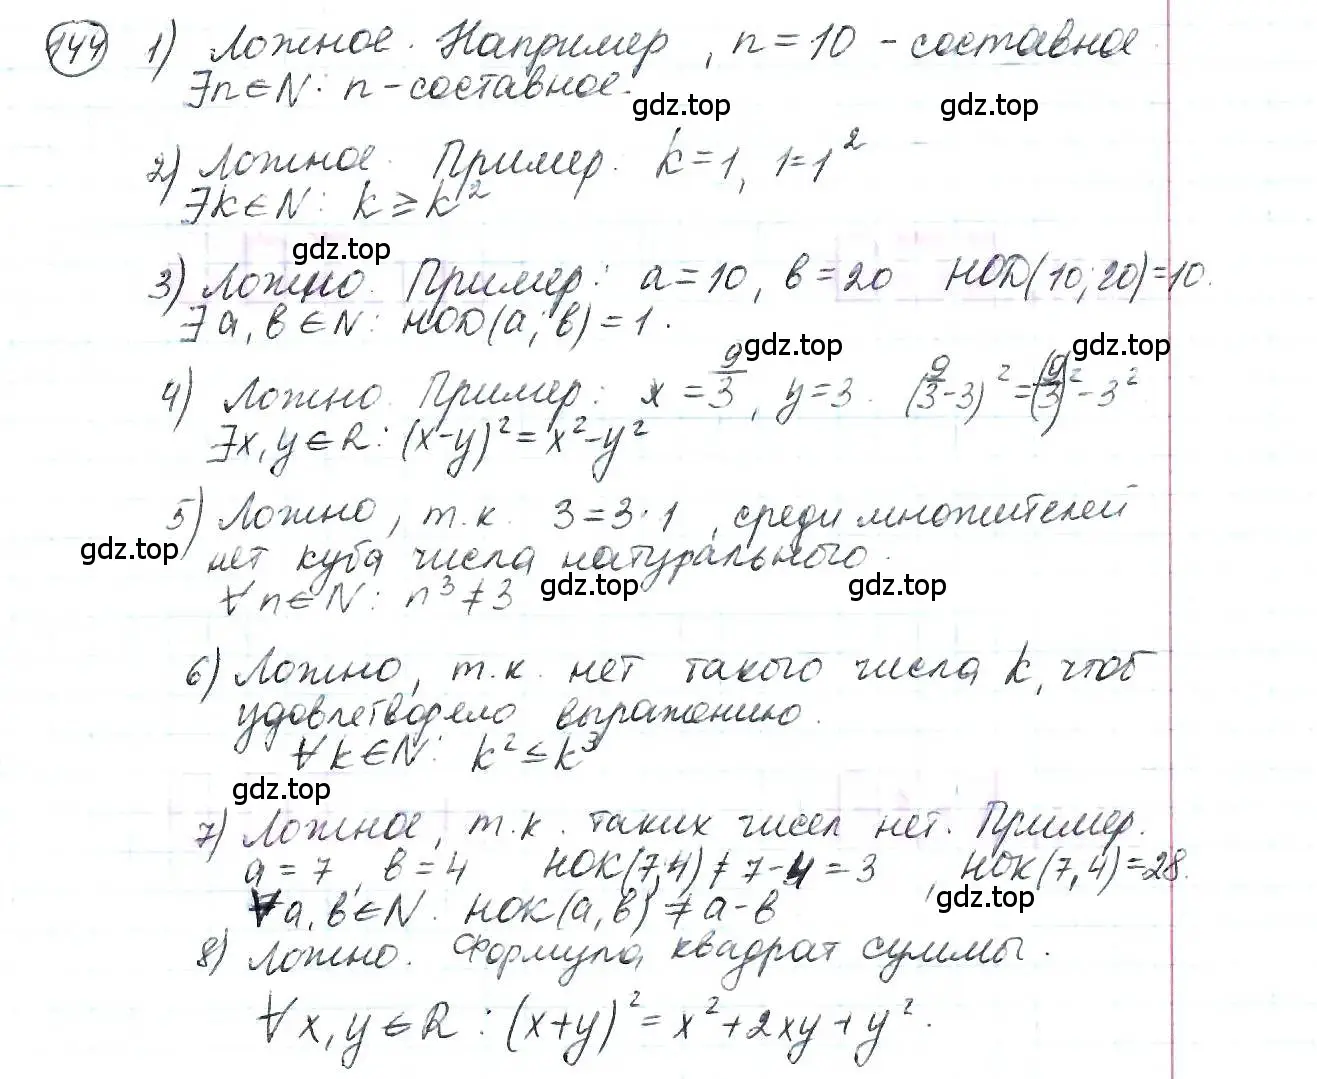 144 1) Ложное. Например, n = 10 - составное.
∃n∈N: n - составное.
gdz.top gdz.top
2) Ложное. Пример. k = 1, 1 = 1²
∃k∈N: k ≥ k²
gdz.top
3) Ложно. Пример: a = 10, b = 20 НОД(10; 20) = 10.
∃a, b ∈ N: НОД(a; b) = 1.
gdz.top gdz.top
4) Ложно. Пример: x = 9/3, y = 3. (9/3 - 3)² = (9/3)² - 3²
∃x, y ∈ R: (x-y)² = x² - y²
5) Ложно, т.к. 3 = 3·1, среди множителей
gdz.top
нет куба числа натурального.
gdz.top gdz.top
∀n∈N: n³ ≠ 3
6) Ложно, т.к. нет такого числа k, чтоб
удовлетворяло выражению.
∀k∈N: k² ≤ k³
gdz.top
7) Ложное, т.к. таких чисел нет. Пример.
a = 7, b = 4 НОК(7,4) ≠ 7-4 = 3, НОК(7,4) = 28.
gdz.top
∀a, b∈N. НОК(a, b) ≠ a - b
8) Ложно. Формула квадрат суммы.
∀x, y ∈ R: (x+y)² = x² + 2xy + y².